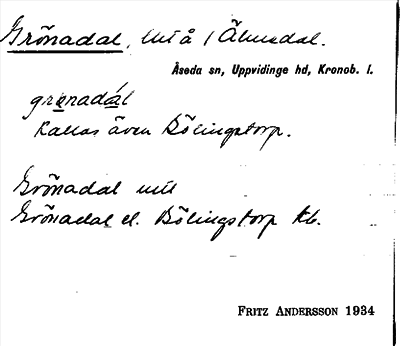 Grönadal, lht å / Älmedal.
Åseda sn, Uppvidinge hd, Kronob. l.
grønadál
Kallas även Bölingstorp.
Grönadal
Grönadal el. Bölingstorp
FRITZ ANDERSSON 1934